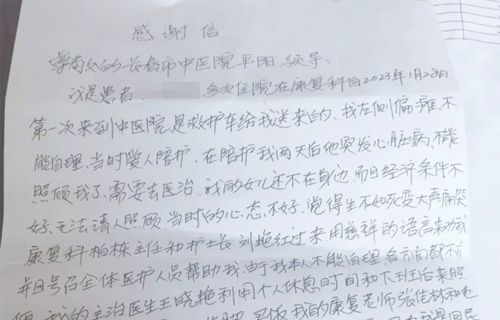 感谢信
尊敬的长春市中医院平阳领导：
我是患者 多次住院在康复科自2023年1月28日
第一次来到中医院是救护车给我送来的，我左侧偏瘫不
能自理，当时爱人陪护，在陪护我两天后他突发心脏病，不能
照顾我了，需要去医治，我的女儿还不在身边而且经济条件不
好，无法请人照顾，当时的心态不好，觉得生不如死要大声痛哭
康复科柏栋主任和护士长刘艳红过来用慈祥的语言来
并且号召全体医护人员帮助我，由于我本人不能自理各方面都不
我的主治医生王晓艳利用个人休息时间和下班后来照
我的康复老师张佳林和